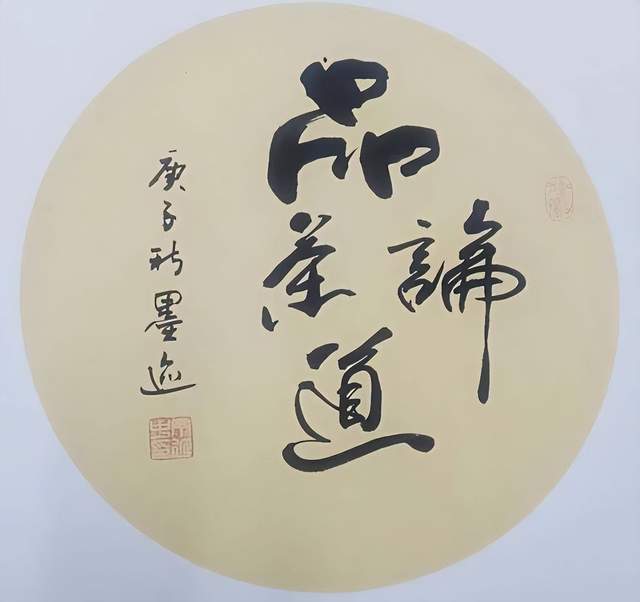 品茶論道
庚子秋墨迹